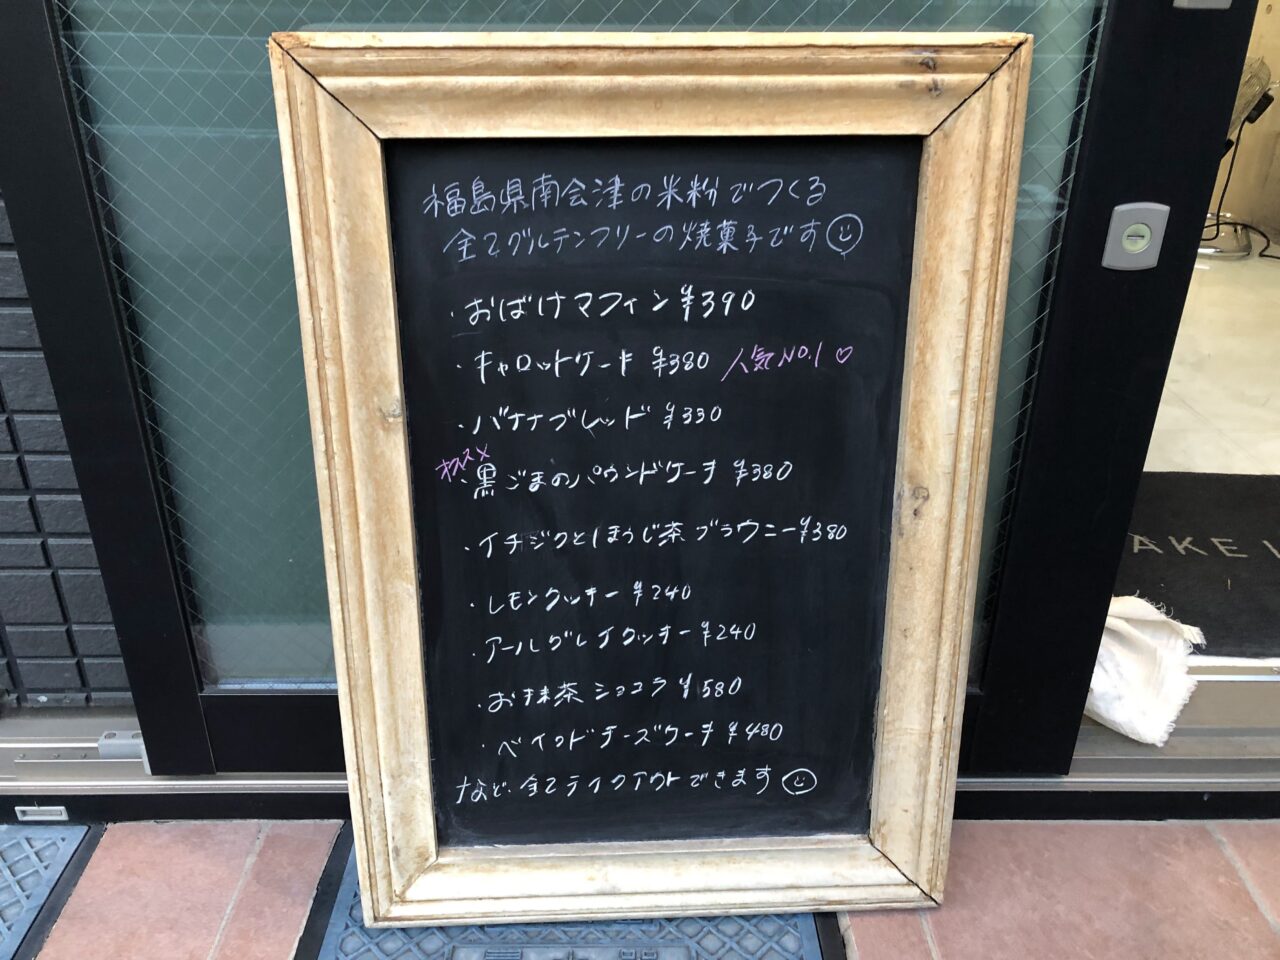 福島県南会津の米粉でつくる
全てグルテンフリーの焼菓子です
・おばけマフィン ¥390
・キャロットケーキ ¥380 人気NO.1♡
・バナナブレッド ¥330
オススメ
・黒ごまのパウンドケーキ ¥380
・イチジクとほうじ茶ブラウニー ¥380
・レモンクッキー ¥240
・アールグレイクッキー ¥240
・お抹茶ショコラ ¥580
・ベイクドチーズケーキ ¥480
など、全てテイクアウトできます
AKE